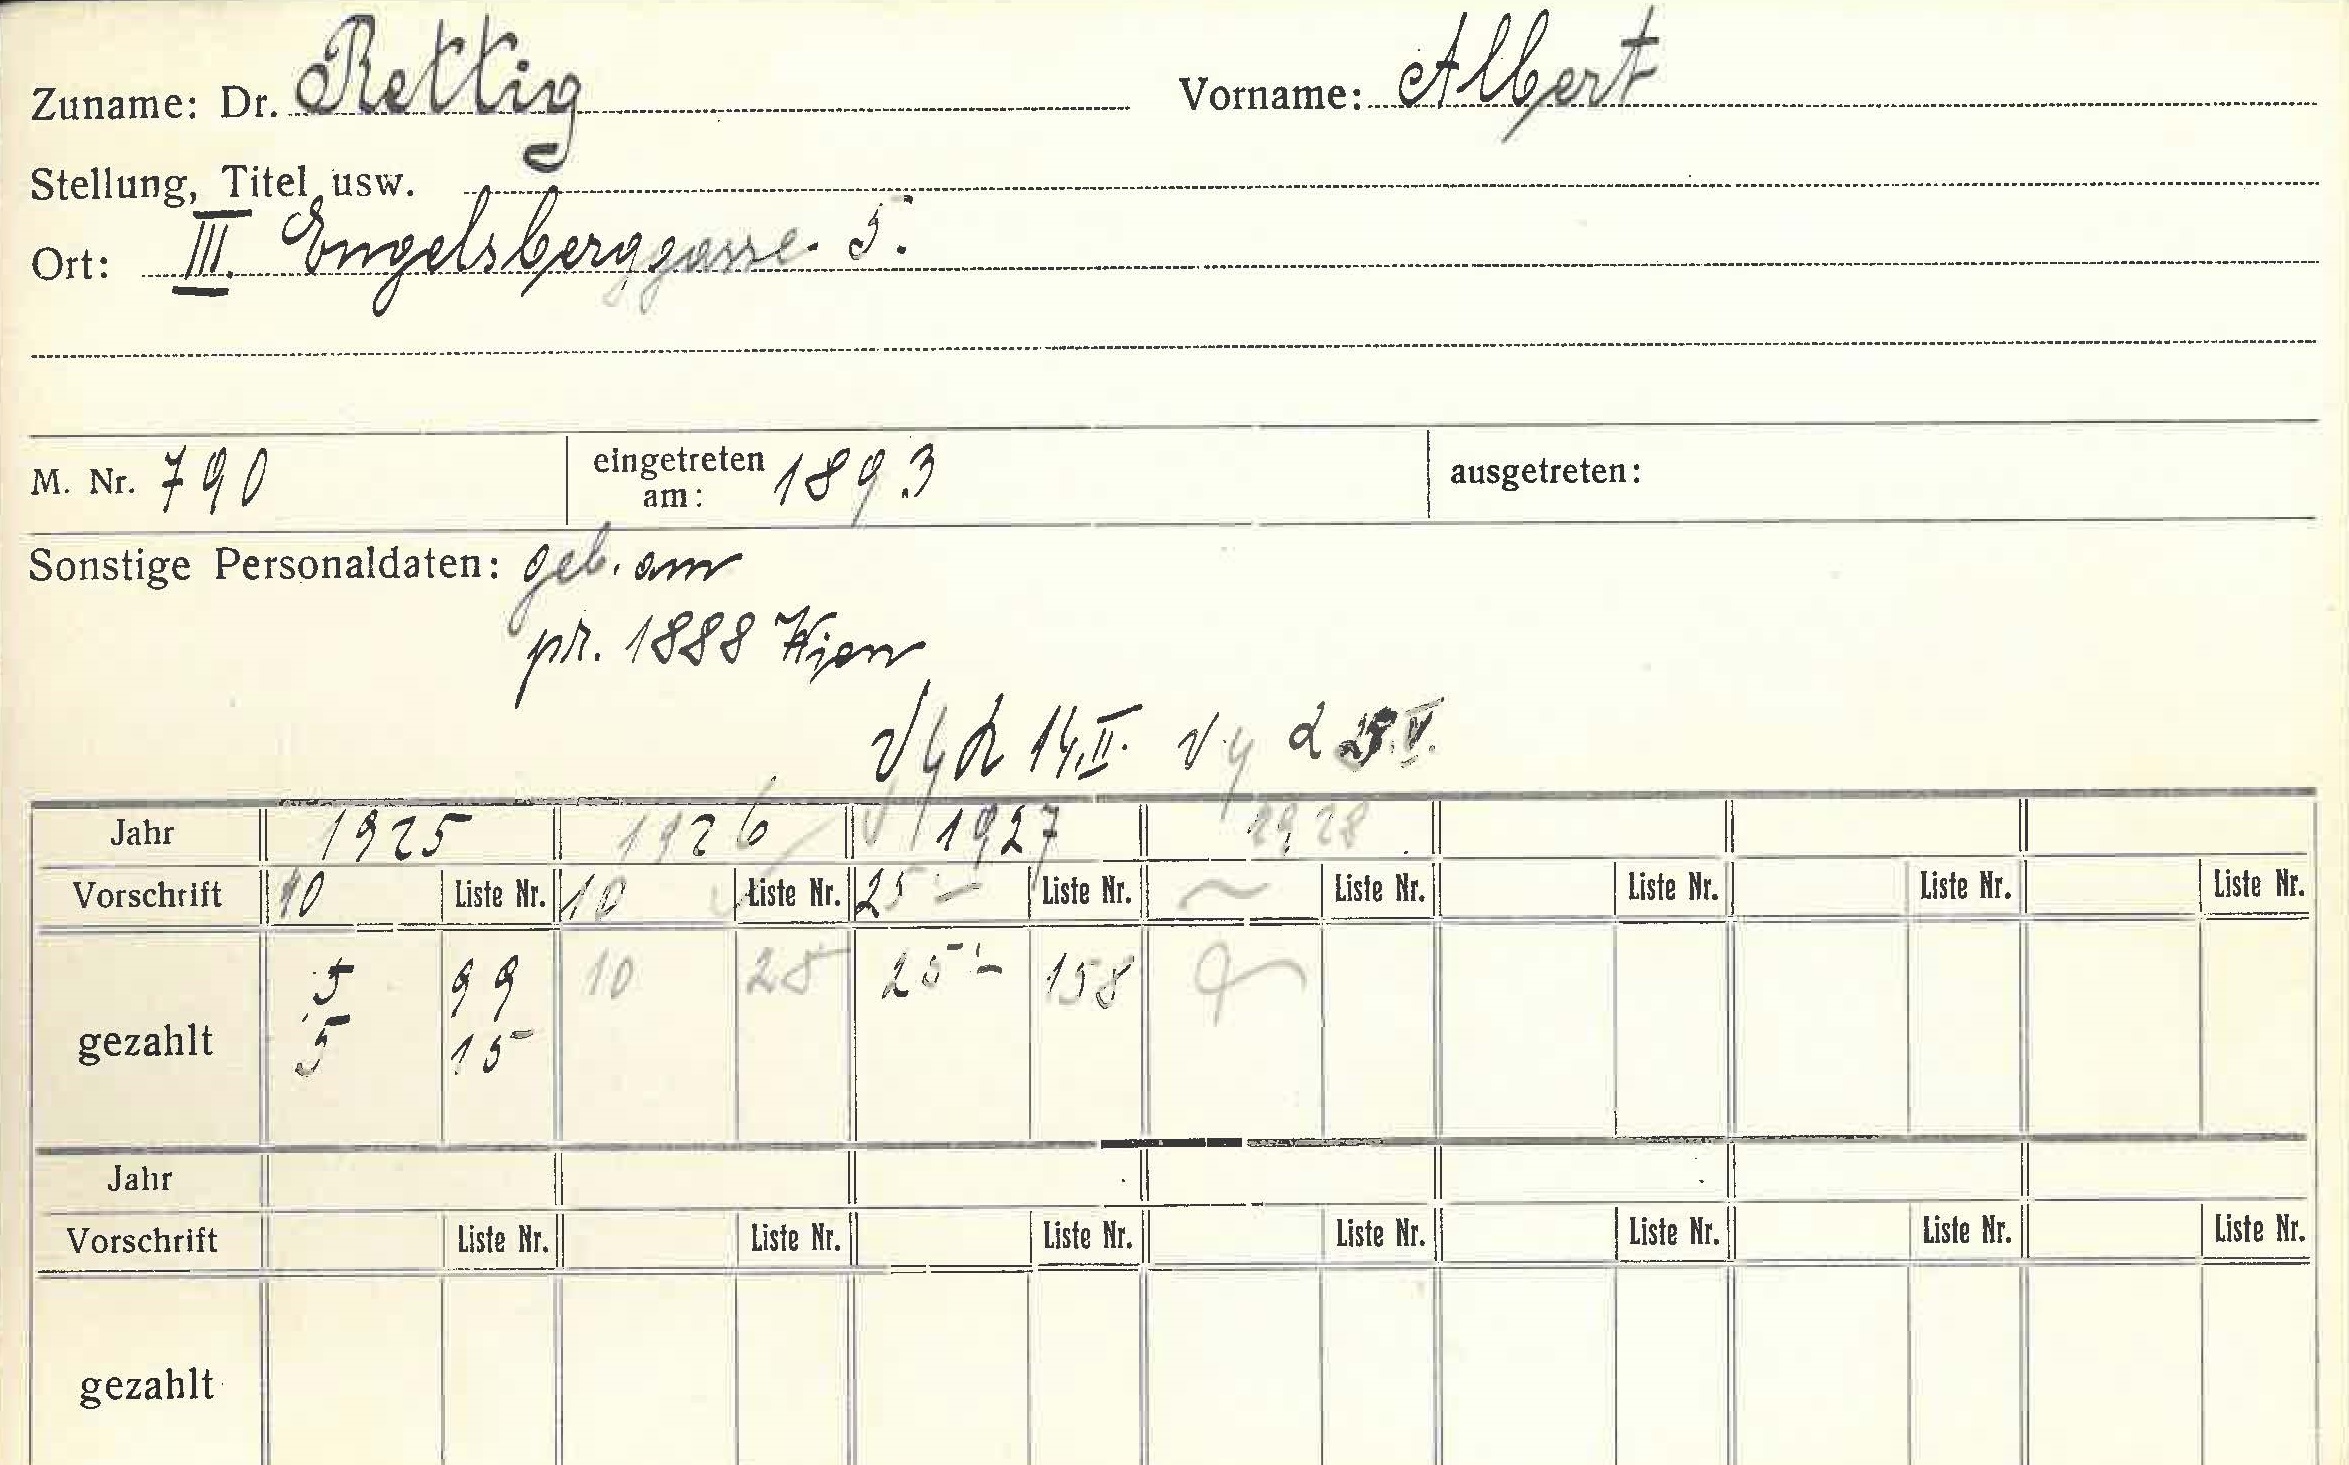 Zuname: Dr. Rettig Vorname: Albert
Stellung, Titel usw.
Ort: III. Engelsberggasse 5.
M. Nr. 790 eingetreten am: 1893 ausgetreten:
Sonstige Personaldaten: geb. am
pr. 1888 Wien
14.II. V.
Jahr 1925 1926 1927 1928
Vorschrift 10 Liste Nr. 10 Liste Nr. 25 - Liste Nr. Liste Nr. Liste Nr. Liste Nr. Liste Nr.
5 99 10 25 25 - 158
gezahlt 5 15
Jahr
Vorschrift Liste Nr. Liste Nr. Liste Nr. Liste Nr. Liste Nr. Liste Nr. Liste Nr.
gezahlt